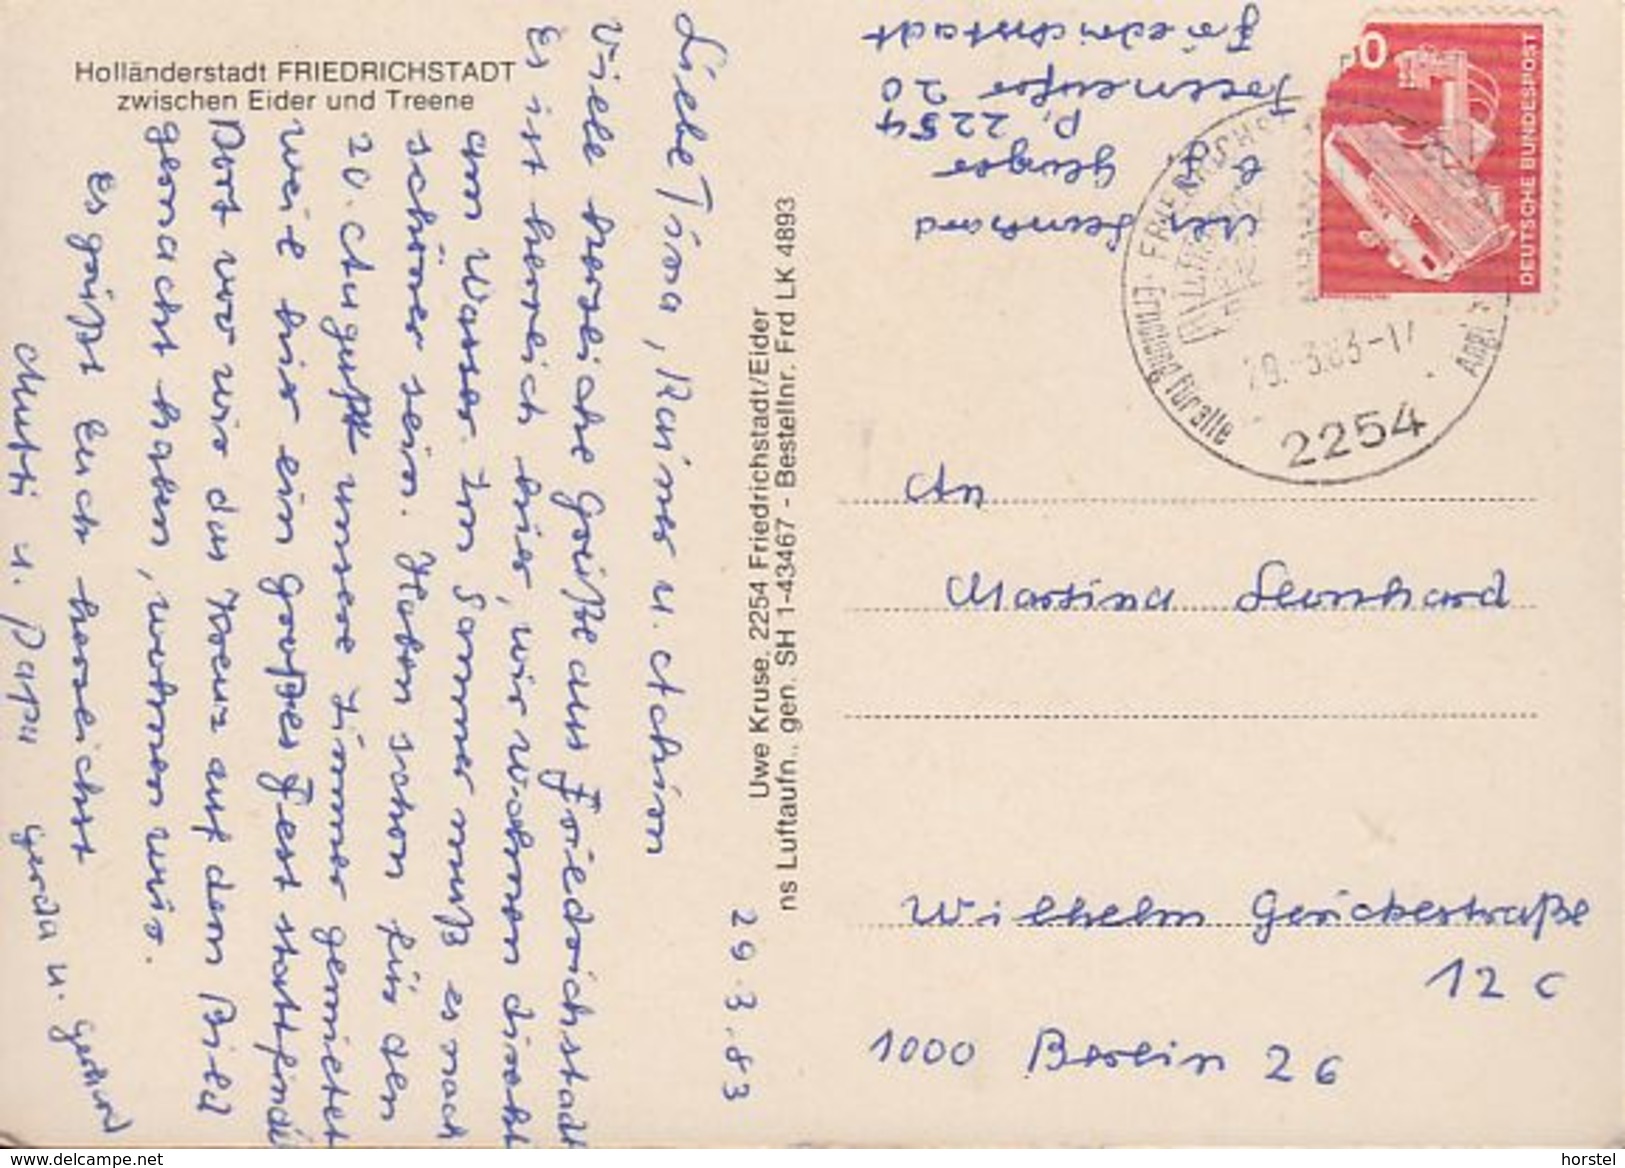 Holländerstadt FRIEDRICHSTADT
zwischen Eider und Treene
29.3.83
Liebe Tina, Rainer u. Achim
Viele herzliche Grüße aus Friedrichstadt
Es ist herrlich hier, wir wohnen direkt
am Wasser. Im Sommer muß es noch
schöner sein. Haben schon für den
20. August unsere Zimmer gemietet
weil hier ein großes Fest stattfindet
Dort wo wir das Kreuz auf dem Bild
gemacht haben, wohnen wir.
Es grüßt Euch herzlichst
Mutti u. Papa Gerda u. Gerhard
Uwe Kruse, 2254 Friedrichstadt/Eider
ns Luftaufn., gen. SH 1-43467 - Bestellnr. Frd LK 4893
Leonhard
P. 2254
20
Friedrichstadt
0
DEUTSCHE BUNDESPOST
Erholung für alle
29.-3.83-17
2254
An
Martina Leonhard
Wilhelm Gerickestraße
12 c
1000 Berlin 26
www.delcampe.net
horstel